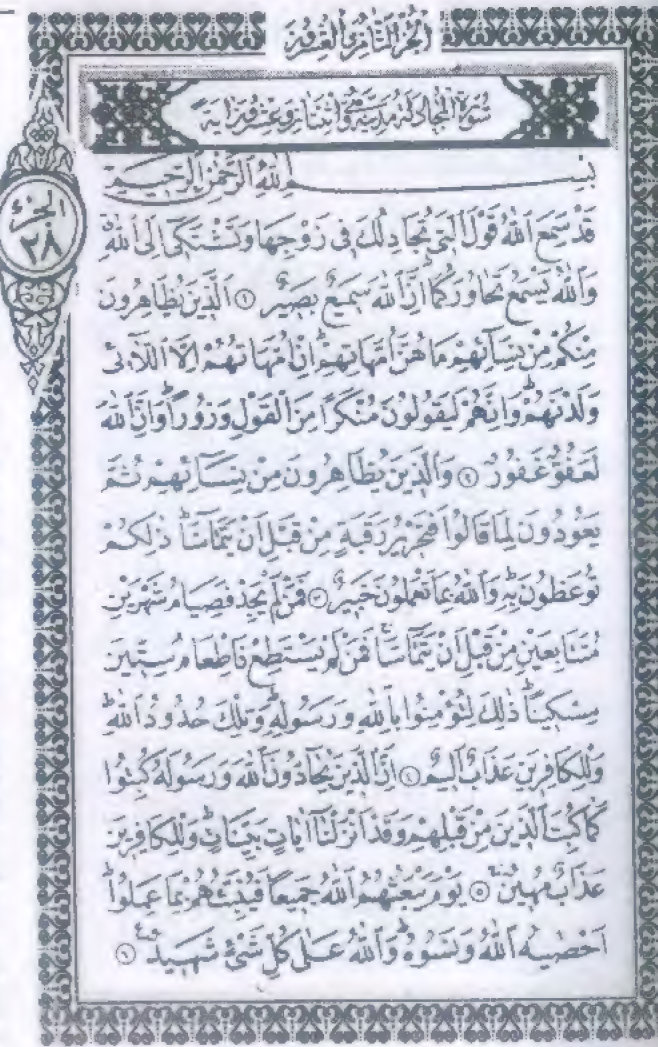 الجزء الثامن والعشرون
سورة المجادلة مدنية وهي اثنتان وعشرون آية
الجزء
٢٨
بسم الله الرحمن الرحيم
قَدْ سَمِعَ اللّٰهُ قَوْلَ الَّتِي تُجَادِلُكَ فِي زَوْجِهَا وَتَشْتَكِي اِلَى اللّٰهِ
وَاللّٰهُ يَسْمَعُ تَحَاوُرَكُمَا اِنَّ اللّٰهَ سَمِيعٌ بَصِيرٌ ١ اَلَّذِينَ يُظَاهِرُونَ
مِنْكُمْ مِنْ نِسَآئِهِمْ مَا هُنَّ اُمَّهَاتِهِمْ اِنْ اُمَّهَاتُهُمْ اِلَّا اللَّآئِي
وَلَدْنَهُمْ وَاِنَّهُمْ لَيَقُولُونَ مُنْكَرًا مِنَ الْقَوْلِ وَزُورًا وَاِنَّ اللّٰهَ
لَعَفُوٌّ غَفُورٌ ٢ وَالَّذِينَ يُظَاهِرُونَ مِنْ نِسَآئِهِمْ ثُمَّ
يَعُودُونَ لِمَا قَالُوا فَتَحْرِيرُ رَقَبَةٍ مِنْ قَبْلِ اَنْ يَتَمَآسَّا ذٰلِكُمْ
تُوعَظُونَ بِهِ وَاللّٰهُ بِمَا تَعْمَلُونَ خَبِيرٌ ٣ فَمَنْ لَمْ يَجِدْ فَصِيَامُ شَهْرَيْنِ
مُتَتَابِعَيْنِ مِنْ قَبْلِ اَنْ يَتَمَآسَّا فَمَنْ لَمْ يَسْتَطِعْ فَاِطْعَامُ سِتِّينَ
مِسْكِينًا ذٰلِكَ لِتُؤْمِنُوا بِاللّٰهِ وَرَسُولِهِ وَتِلْكَ حُدُودُ اللّٰهِ
وَلِلْكَافِرِينَ عَذَابٌ اَلِيمٌ ٤ اِنَّ الَّذِينَ يُحَآدُّونَ اللّٰهَ وَرَسُولَهُ كُبِتُوا
كَمَا كُبِتَ الَّذِينَ مِنْ قَبْلِهِمْ وَقَدْ اَنْزَلْنَا اٰيَاتٍ بَيِّنَاتٍ وَلِلْكَافِرِينَ
عَذَابٌ مُهِينٌ ٥ يَوْمَ يَبْعَثُهُمُ اللّٰهُ جَمِيعًا فَيُنَبِّئُهُمْ بِمَا عَمِلُوا
اَحْصٰيهُ اللّٰهُ وَنَسُوهُ وَاللّٰهُ عَلٰى كُلِّ شَيْءٍ شَهِيدٌ ٦